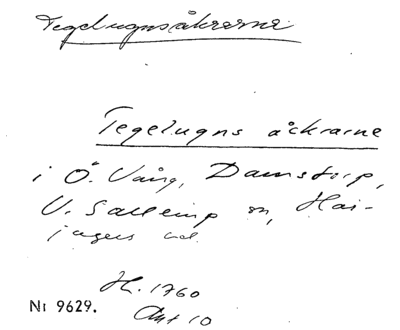 Tegelugnsåkrarne
Tegelugns åckrarne
i Ö. Vång, Damstorp,
V. Sallerup sn, Har-
jagers hd.
H. 1760
Akt 10
Nr 9629.